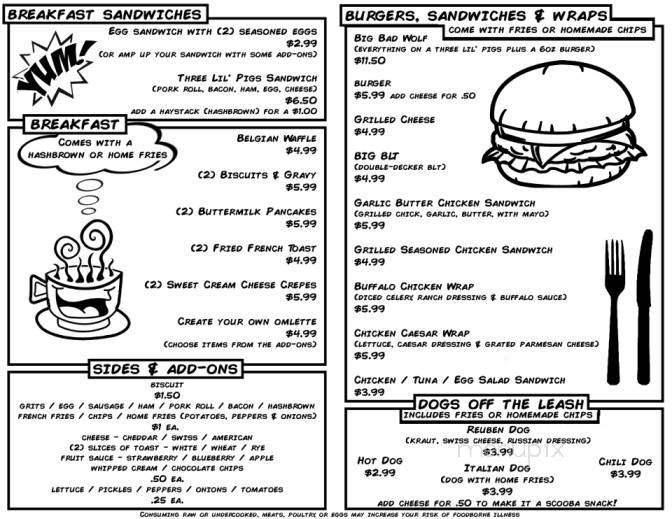 BREAKFAST SANDWICHES
EGG SANDWICH WITH (2) SEASONED EGGS
$2.99
(OR AMP UP YOUR SANDWICH WITH SOME ADD-ONS)
YUM!
THREE LIL' PIGS SANDWICH
(PORK ROLL, BACON, HAM, EGG, CHEESE)
$6.50
ADD A HAYSTACK (HASHBROWN) FOR A $1.00
BREAKFAST
COMES WITH A
HASHBROWN OR HOME FRIES
BELGIAN WAFFLE
$4.99
(2) BISCUITS & GRAVY
$5.99
(2) BUTTERMILK PANCAKES
$5.99
(2) FRIED FRENCH TOAST
$4.99
(2) SWEET CREAM CHEESE CREPES
$5.99
CREATE YOUR OWN OMLETTE
$4.99
(CHOOSE ITEMS FROM THE ADD-ONS)
SIDES & ADD-ONS
BISCUIT
$1.50
GRITS / EGG / SAUSAGE / HAM / PORK ROLL / BACON / HASHBROWN
FRENCH FRIES / CHIPS / HOME FRIES (POTATOES, PEPPERS & ONIONS)
$1 EA.
CHEESE - CHEDDAR / SWISS / AMERICAN
(2) SLICES OF TOAST - WHITE / WHEAT / RYE
FRUIT SAUCE - STRAWBERRY / BLUEBERRY / APPLE
WHIPPED CREAM / CHOCOLATE CHIPS
.50 EA.
LETTUCE / PICKLES / PEPPERS / ONIONS / TOMATOES
.25 EA.
BURGERS, SANDWICHES & WRAPS
COME WITH FRIES OR HOMEMADE CHIPS
BIG BAD WOLF
(EVERYTHING ON A THREE LIL' PIGS PLUS A 6OZ BURGER)
$11.50
BURGER
$5.99 ADD CHEESE FOR .50
GRILLED CHEESE
$4.99
BIG BLT
(DOUBLE-DECKER BLT)
$4.99
GARLIC BUTTER CHICKEN SANDWICH
(GRILLED CHICK, GARLIC, BUTTER, WITH MAYO)
$5.99
GRILLED SEASONED CHICKEN SANDWICH
$4.99
BUFFALO CHICKEN WRAP
(DICED CELERY, RANCH DRESSING & BUFFALO SAUCE)
$5.99
CHICKEN CAESAR WRAP
(LETTUCE, CAESAR DRESSING & GRATED PARMESAN CHEESE)
$5.99
CHICKEN / TUNA / EGG SALAD SANDWICH
$3.99
DOGS OFF THE LEASH
INCLUDES FRIES OR HOMEMADE CHIPS
REUBEN DOG
(KRAUT, SWISS CHEESE, RUSSIAN DRESSING)
$3.99
HOT DOG
$2.99
ITALIAN DOG
(DOG WITH HOME FRIES)
$3.99
CHILI DOG
$3.99
ADD CHEESE FOR .50 TO MAKE IT A SCOOBA SNACK!
CONSUMING RAW OR UNDERCOOKED, MEATS, POULTRY, OR EGGS MAY INCREASE YOUR RISK OF FOODBORNE ILLNESS